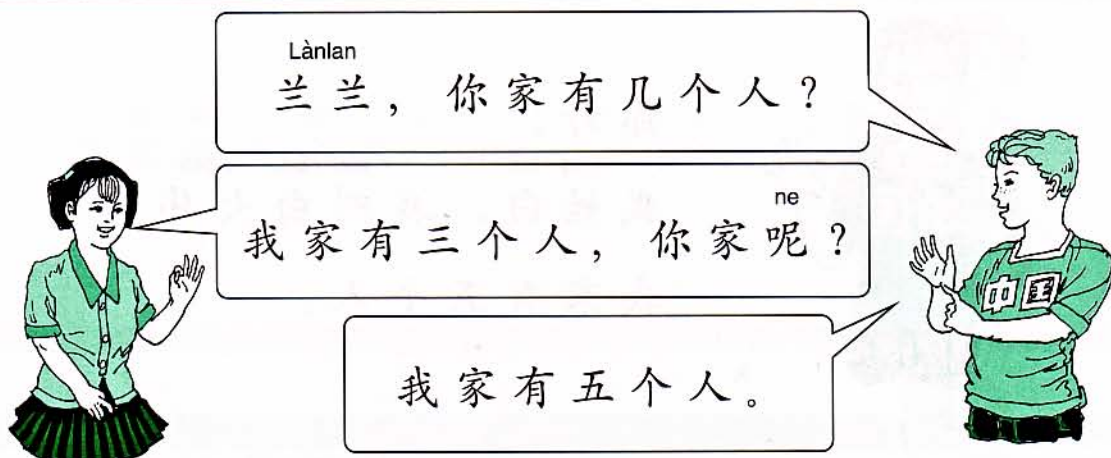 Lànlan
兰兰，你家有几个人？
ne
我家有三个人，你家呢？
中国
我家有五个人。